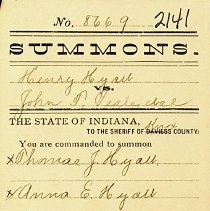 No. 8669 2141
SUMMONS.
Henry Hyatt
vs.
John T. et al
THE STATE OF INDIANA,
Knox
TO THE SHERIFF OF DAVIESS COUNTY:
You are commanded to summon
x Thomas J. Hyatt
x Anna E. Hyatt